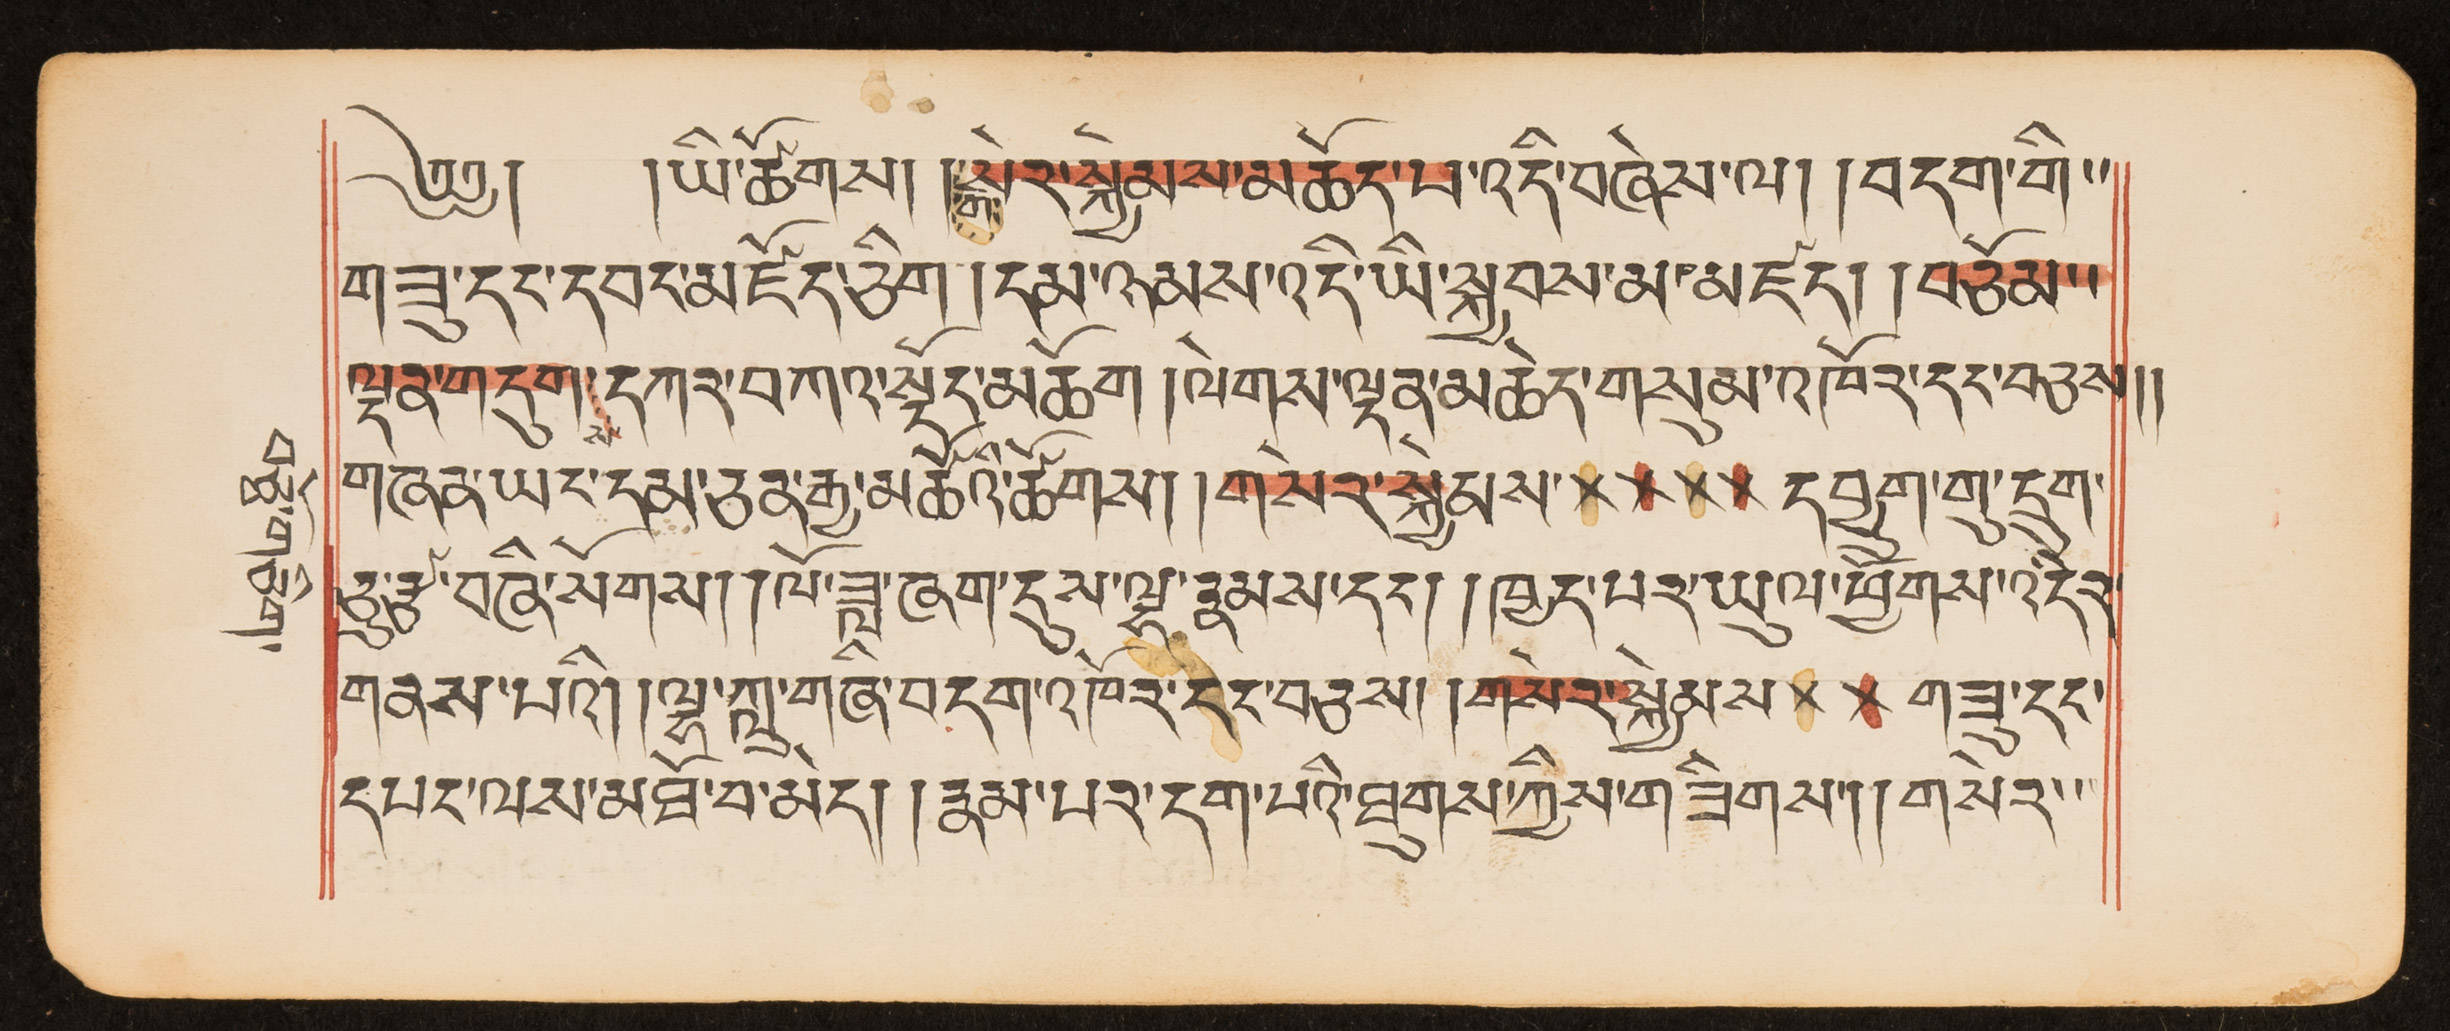 ༄༅། །ཡི་ཚོགས། །གསེར་སྐྱེམས་མཆོད་པ་འདི་བཞེས་ལ། །བདག་གི་
གཟུ་དང་དཔང་མཛོད་ཅིག །དམ་ཉམས་འདི་ཡི་སྐྱབས་མ་མཛད། །བཅོམ་
ལྡན་གདུག་དཀར་བཀའ་སྡོད་མཆོག །ལེགས་ལྡན་མཆེད་གསུམ་འཁོར་དང་བཅས། །
གཞན་ཡང་དམ་ཅན་རྒྱ་མཚོའི་ཚོགས། །གསེར་སྐྱེམས་ × × × × དབྱུག་གུ་དྲུག་
ཅུ་རྩ་བཞི་སོགས། །ལོ་ཟླ་ཞག་དུས་ལྷ་རྣམས་དང། །ཁྱད་པར་ཡུལ་ཕྱོགས་འདིར་
གནས་པའི། །ལྷ་ཀླུ་གཞི་བདག་འཁོར་དང་བཅས། །གསེར་སྐྱེམས × × གཟུ་དང་
དཔང་ལས་མཐོ་བ་མེད། །རྣམ་པར་དག་པའི་ཐུགས་ཀྱིས་གཟིགས། །གསེར་